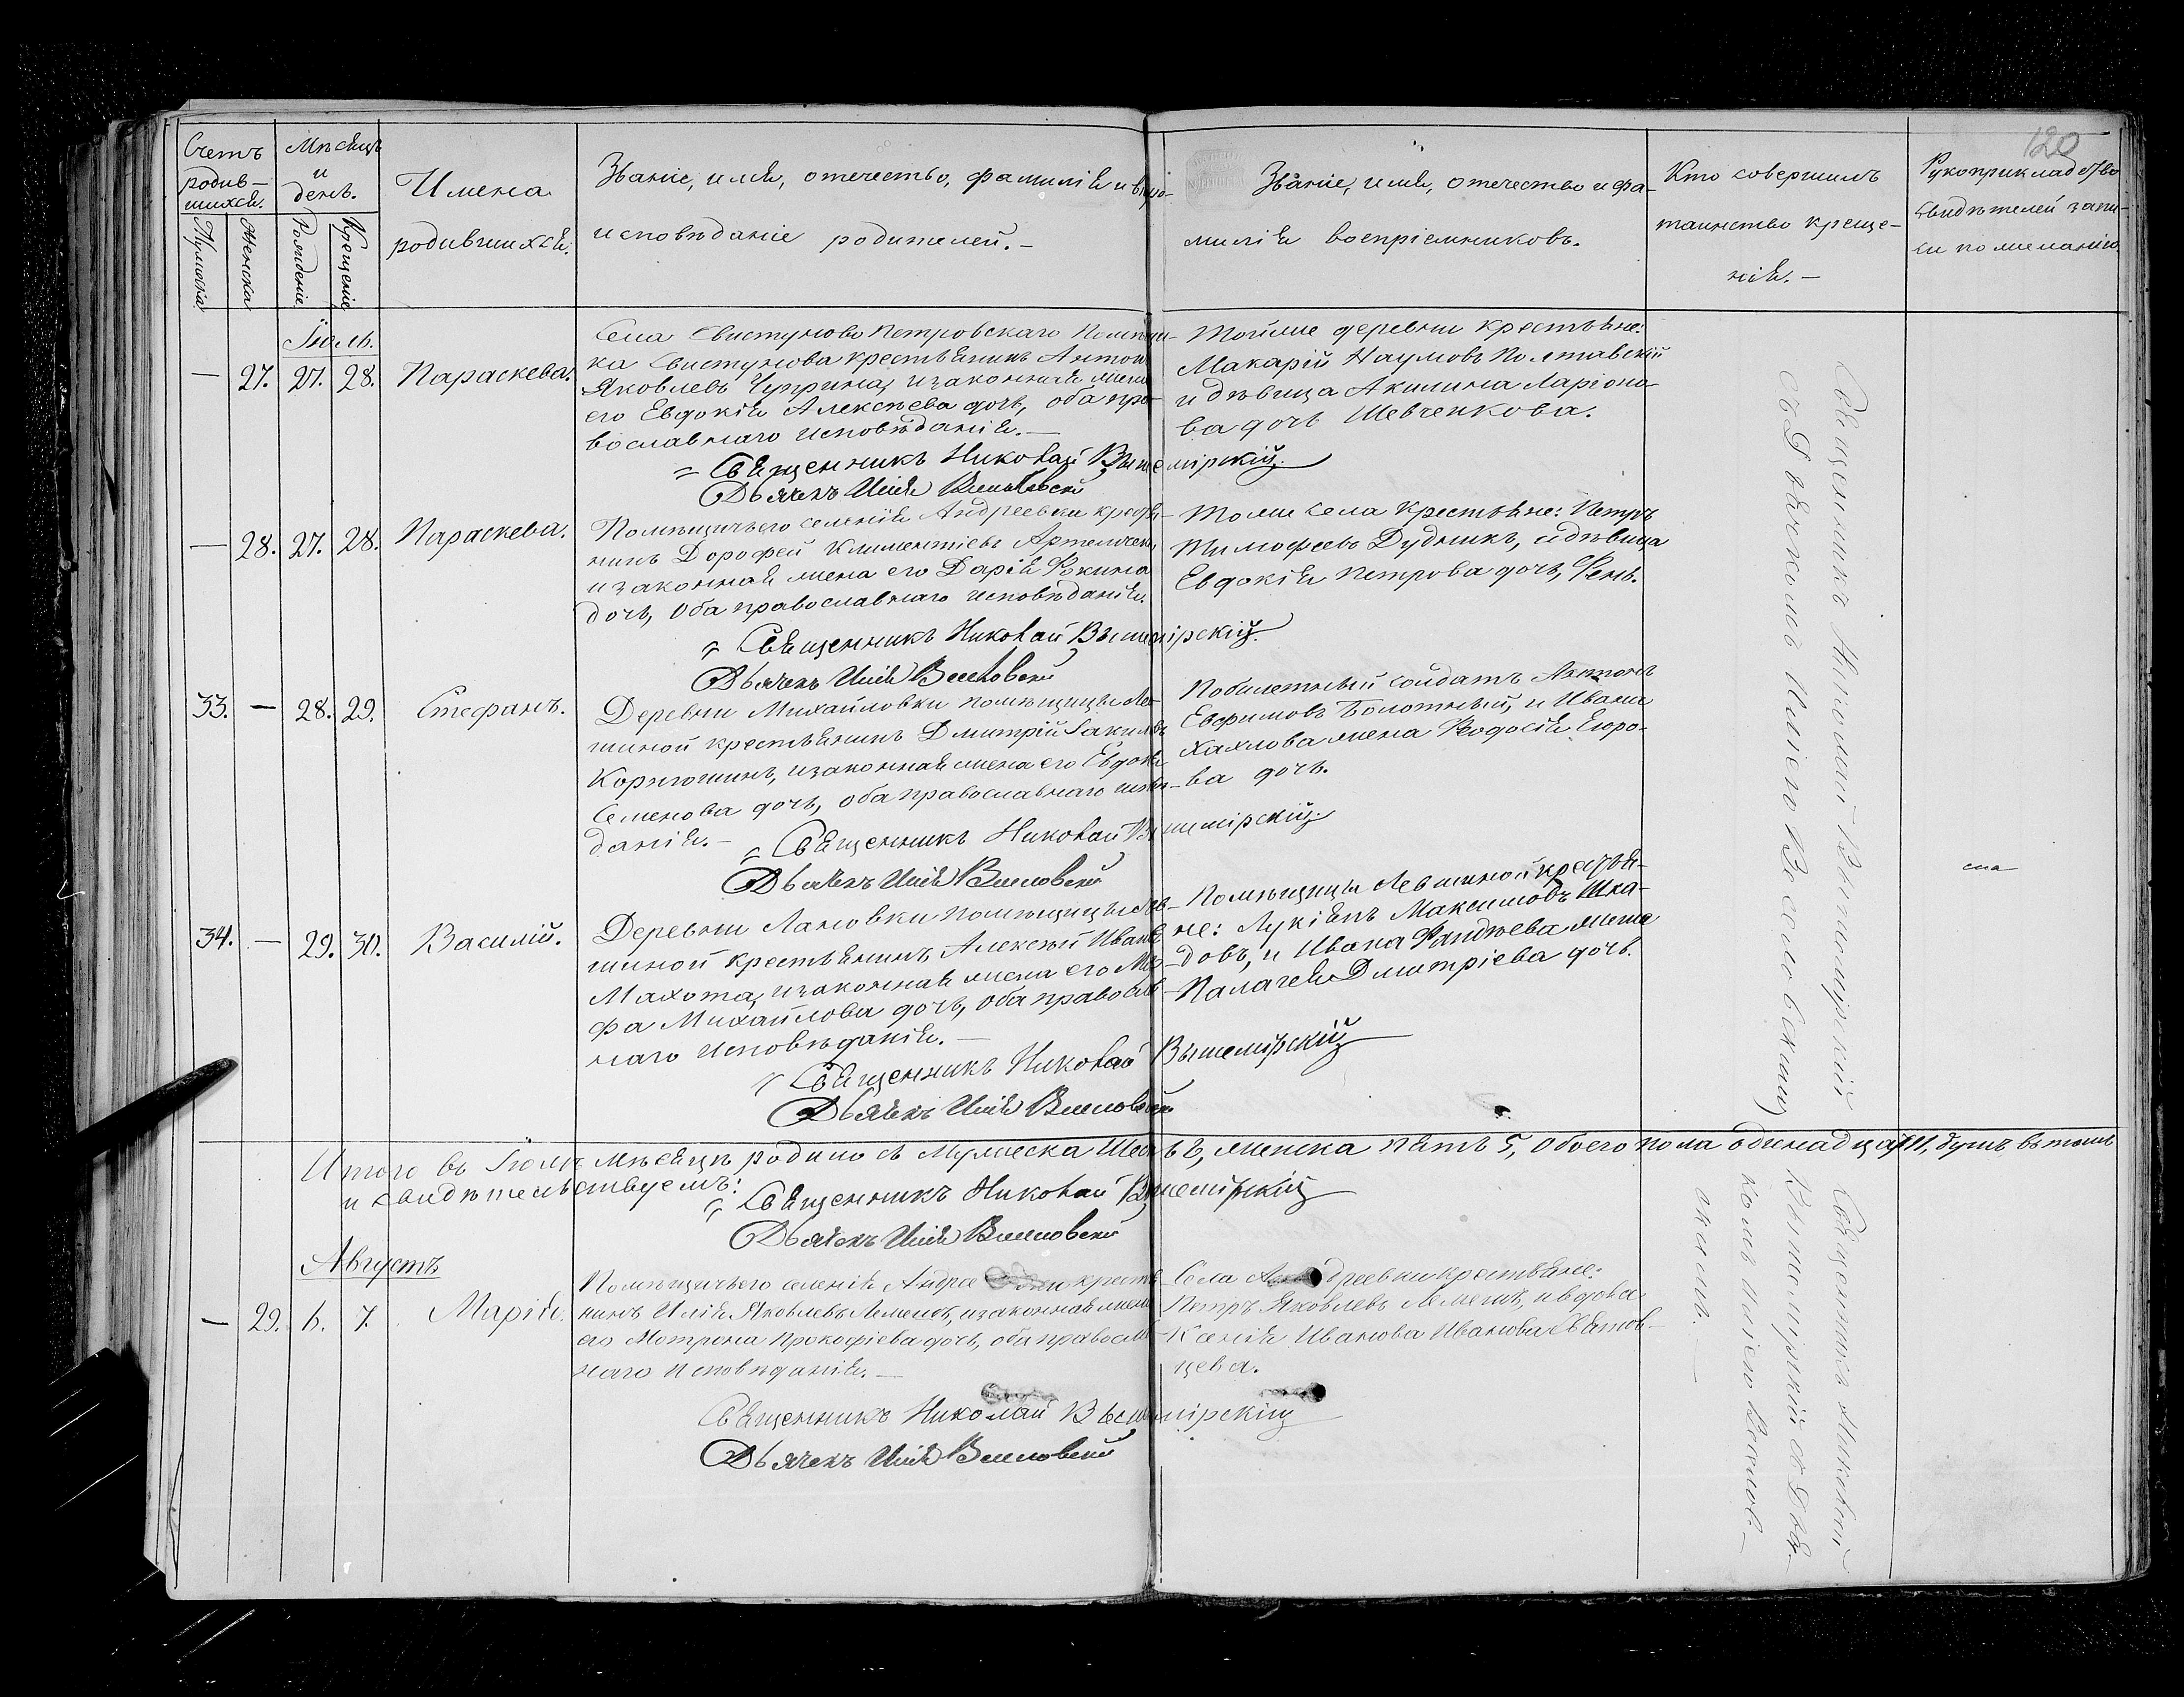 120
Счетъ
родив-
шихся.
Мужеска
Женска
Мѣсяцъ
и
день.
Рожденіе
Крещеніе
Имена
родившихся.
Званіе, имя, отечество, фамилія и
исповѣданіе родителей.—
Званіе, имя, отечество и фа-
милія воспріемниковъ.
Кто совершилъ
таинство креще-
нія.—
Рукоприкладство
свидѣтелей запи-
си по желанію
Іюль.
— 27. 27. 28. Параскева.
Села Свистуново Петровскаго помѣщи-
ка Свистунова крестьянинъ Антон
Яковлевъ Чуприна, и законная жена
его Евдокія Алексѣева дочь, оба пра-
вославнаго исповѣданія.—
Тойже деревни крестьяне:
Макарій Наумовъ Полтавскій
и дѣвица Акилина Ларіоно-
ва дочь Шевченкова.
Священникъ Николай Вышемірскій
Дьячекъ Илія
— 28. 27. 28. Параскева.
Помѣщичьего селенія Андреевки крестья-
нинъ Дорофей Климентіевъ
и законная жена его Дарія Фокина
дочь, оба православнаго исповѣданія.
Тогоже села крестьяне: Петръ
Тимофеевъ Дудникъ, и дѣвица
Евдокія Петрова дочь, Фень.
Священникъ Николай Вышемірскій
Дьячекъ Илія
33. — 28. 29. Стефанъ.
Деревни Михайловки помѣщицы Ле-
шиной крестьянинъ Дмитрій
Корнюшинъ, и законная жена его Евдокія
Семенова дочь, оба православнаго исповѣ-
данія.—
Побилетный солдатъ Антонъ
Евфимовъ Болотный, и Ивана
Хахлова жена Феодосія Егоро-
ва дочь.
Священникъ Николай Вышемірскій
Дьячекъ Илія
34. — 29. 30. Василій.
Деревни Лановки помѣщицы Лев-
шиной крестьянинъ Алексѣй Ивановъ
Махота, и законная жена его Мар-
фа Михайлова дочь, оба православ-
наго исповѣданія.—
Помѣщицы Левшиной крестья-
не: Лукіянъ Максимовъ Шка-
довъ, и Ивана Фандѣева жена
Палагея Дмитріева дочь.
Священникъ Николай Вышемірскій
Дьячекъ Илія
Священникъ Николай Вышемірскій
съ Дьячкомъ Иліею Веселовскимъ
Итого въ Іюлѣ мѣсяцѣ родилось Мужеска Шесть 6, женска пять 5, обоего пола одинадцать 11, душъ въ томъ
и свидѣтельствуемъ:
Священникъ Николай Вышемірскій
Дьячекъ Илія
Августъ
— 29. 6. 7. Марія.
Помѣщичьего селенія крестья-
нинъ Илія Яковлевъ Лемешъ, и законная жена
его Мотрона Прокофіева дочь, оба православ-
наго исповѣданія.—
Села крестьяне:
Петръ Яковлевъ Лемешъ, и вдова
Ксенія Иванова Иванова
цева.
Священникъ Николай Вышемірскій
Дьячекъ Илія
Священникъ Николай
Вышемірскій съ Дья-
комъ Иліею Веселов-
скимъ.—